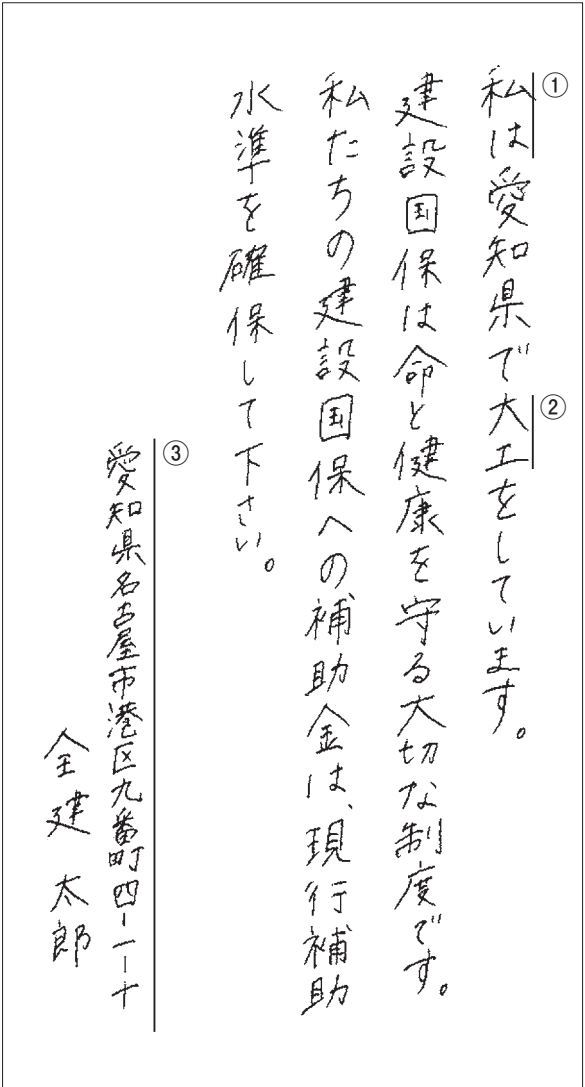 ①
私は愛知県で大工をしています。
②
建設国保は命と健康を守る大切な制度です。
私たちの建設国保への補助金は、現行補助
水準を確保して下さい。
③
愛知県名古屋市港区九番町四-一-十
全建 太郎